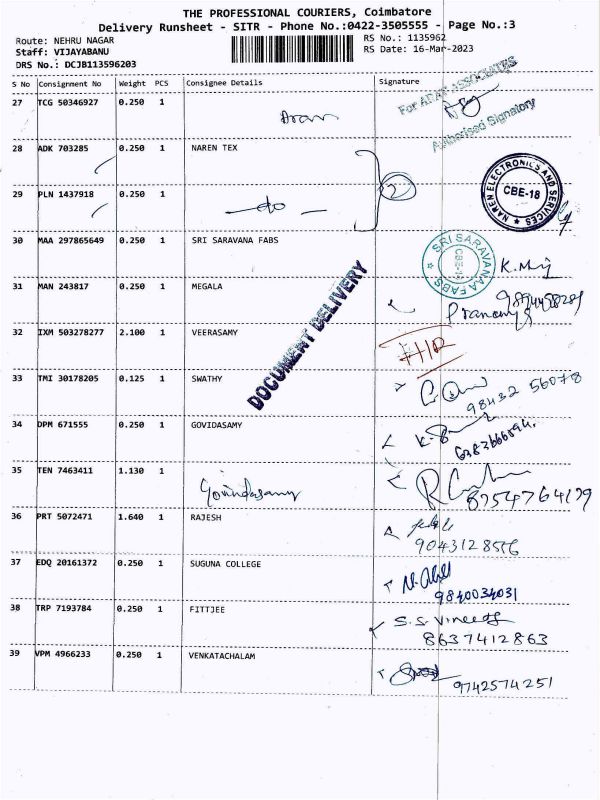 THE PROFESSIONAL COURIERS, Coimbatore
Delivery Runsheet - SITR - Phone No.:0422-3505555 - Page No.:3
Route: NEHRU NAGAR
RS No.: 1135962
Staff: VIJAYABANU
RS Date: 16-Mar-2023
DRS No.: DCJB113596203
S No Consignment No Weight PCS Consignee Details Signature
For ASSOCIATES
Authorised Signatory
27 TCG 50346927 0.250 1
28 ADK 703285 0.250 1 NAREN TEX
NAREN ELECTRONICS AND SERVICES
CBE-18
29 PLN 1437918 0.250 1 — do —
30 MAA 297865649 0.250 1 SRI SARAVANA FABS
SRI SARAVANAA FABS
31 MAN 243817 0.250 1 MEGALA
DOCUMENT DELIVERY
32 IXM 503278277 2.100 1 VEERASAMY
33 TMI 30178205 0.125 1 SWATHY
98432 56078
34 DPM 671555 0.250 1 GOVIDASAMY
35 TEN 7463411 1.130 1 Govindasamy
8754764179
36 PRT 5072471 1.640 1 RAJESH
37 EDQ 20161372 0.250 1 SUGUNA COLLEGE
9840034031
38 TRP 7193784 0.250 1 FITTJEE
S.S. Vineeth
8637412863
39 VPM 4966233 0.250 1 VENKATACHALAM
9742574251